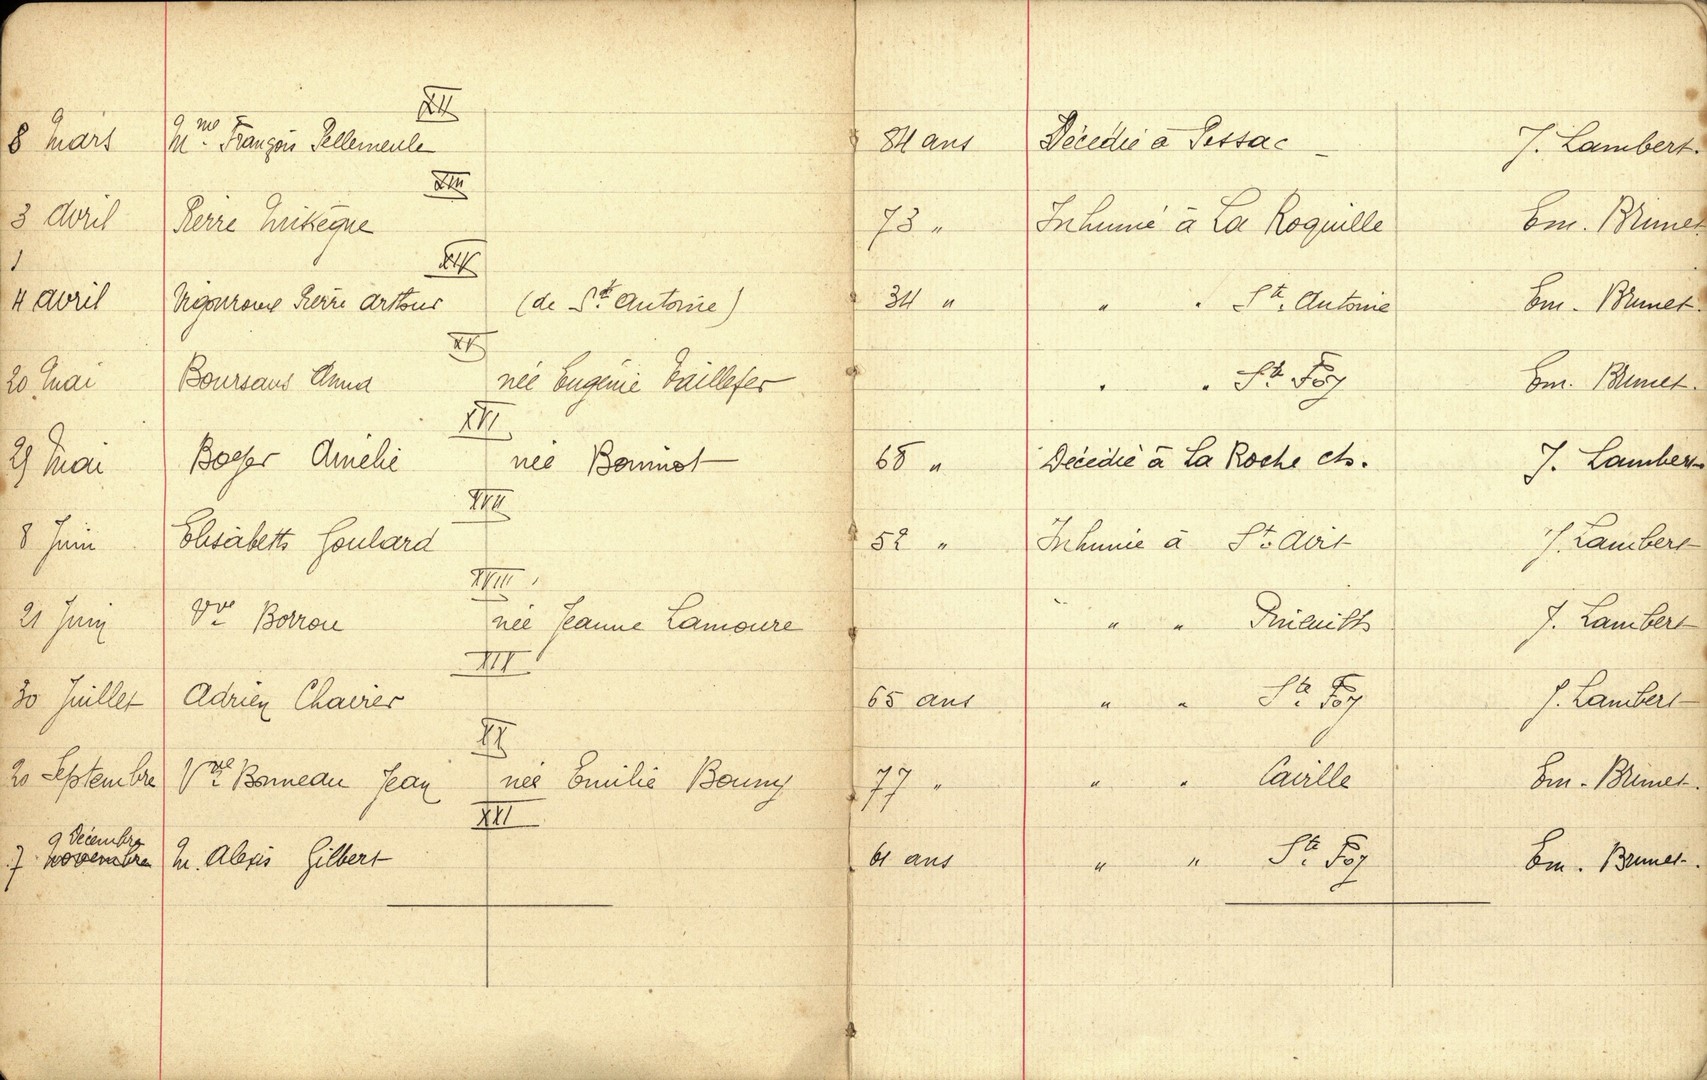 XII
8 Mars Mme. François Pellemeule 84 ans Décédée à Pessac J. Lambert.
XIII
3 Avril Pierre 73 " Inhumé à La Roquille Em. Brunet
1
XIV
4 avril Vigouroux Pierre Arthur (de St. Antoine) 34 " " " St. Antoine Em. Brunet.
XV
20 Mai Boursaus Anna née Eugénie Taillefer " " Ste Foy Em. Brunet.
XVI
29 Mai Boyer Amélie née Bonniot 68 " Décédée à La Roche ch. J. Lambert
XVII
8 Juin Elisabeth Goulard 52 " Inhumée à St. Avit J. Lambert
XVIII
21 Juin Vve Borrou née Jeanne Lamoure " " J. Lambert
XIX
30 Juillet Adrien Chavier 65 ans " " Ste Foy J. Lambert
XX
20 Septembre Vve Bonneau Jean née Emilie Bouny 77 " " " Caville Em. Brunet.
XXI
9 Décembre
7 novembre M. Alexis Gilbert 61 ans " " Ste Foy Em. Brunet.